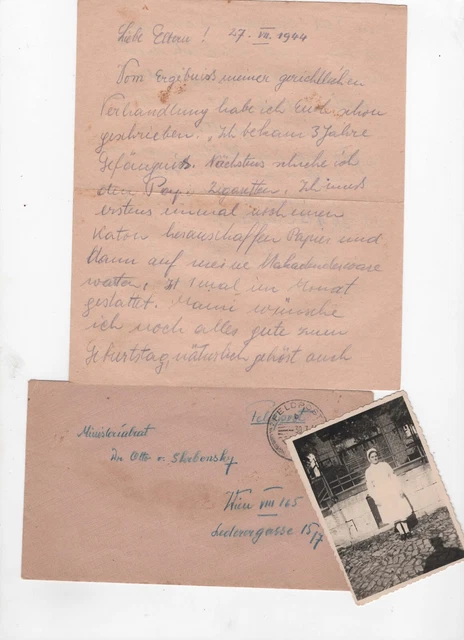 Liebe Eltern! 27. VII. 1944
Vom Ergebniss meiner gerichtlichen
Verhandlung habe ich Euch schon
geschrieben. Ich bekam 3 Jahre
Gefängniss. Nächstens schicke ich
den Papi Zigaretten. Ich muß
erstens einmal noch einen
Karton herausschaffen Papier und
dann auf meine
warten. Ist 1 mal im Monat
gestattet. Mami wünsche
ich noch alles gute zum
Geburtstag, natürlich gehört auch
Feldpost
FELDPOST
Ministerialrat
Dr. Otto v. Skrbensky
Wien VIII 165
Lederergasse 15/7